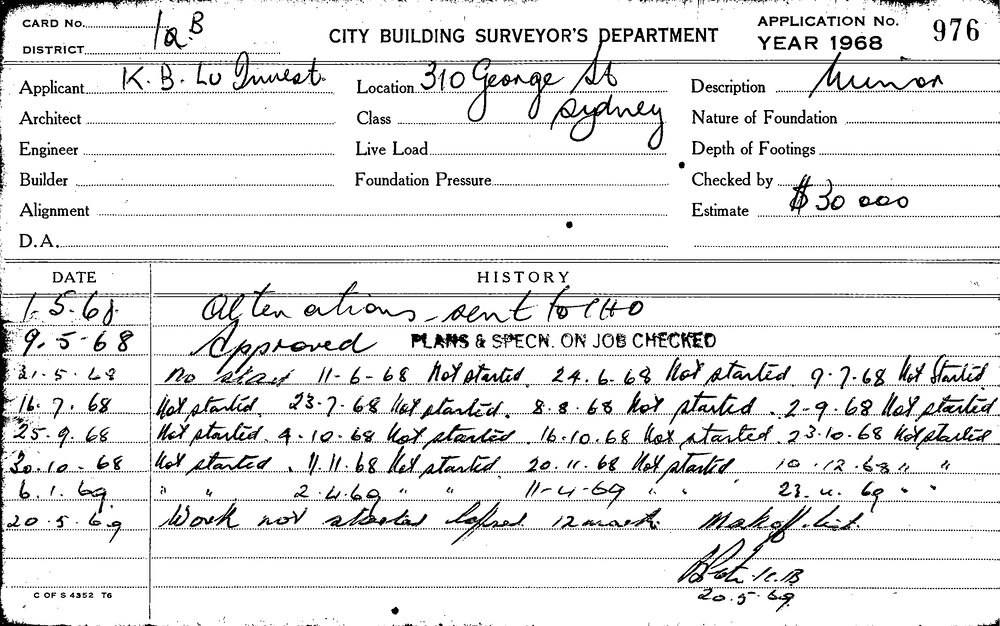 CARD No. 12B
DISTRICT
CITY BUILDING SURVEYOR'S DEPARTMENT
APPLICATION No. 976
YEAR 1968
Applicant K. B. Lu Invest. Location 310 George St Sydney Description Minor
Architect Class Nature of Foundation
Engineer Live Load Depth of Footings
Builder Foundation Pressure Checked by
Alignment Estimate $30 000
D.A.
DATE HISTORY
1.5.68 Alterations - sent to CHO
9.5.68 Approved PLANS & SPECN. ON JOB CHECKED
21.5.68 No start 11-6-68 Not started. 24.6.68 Not started 9.7.68 Not Started
16.7.68 Not started. 23.7.68 Not started. 8.8.68 Not started. 2-9.68 Not started
25.9.68 Not started. 4.10.68 Not started. 16.10.68 Not started. 23.10.68 Not started
30.10.68 Not started. 11.11.68 Not started 20.11.68 Not started 10.12.68 " "
6.1.69 " " 2.4.69 " " 11-4-69 " " 23.4.69 " "
20.5.69 Work not started lapsed 12 month.
20.5.69
C OF S 4352 T6